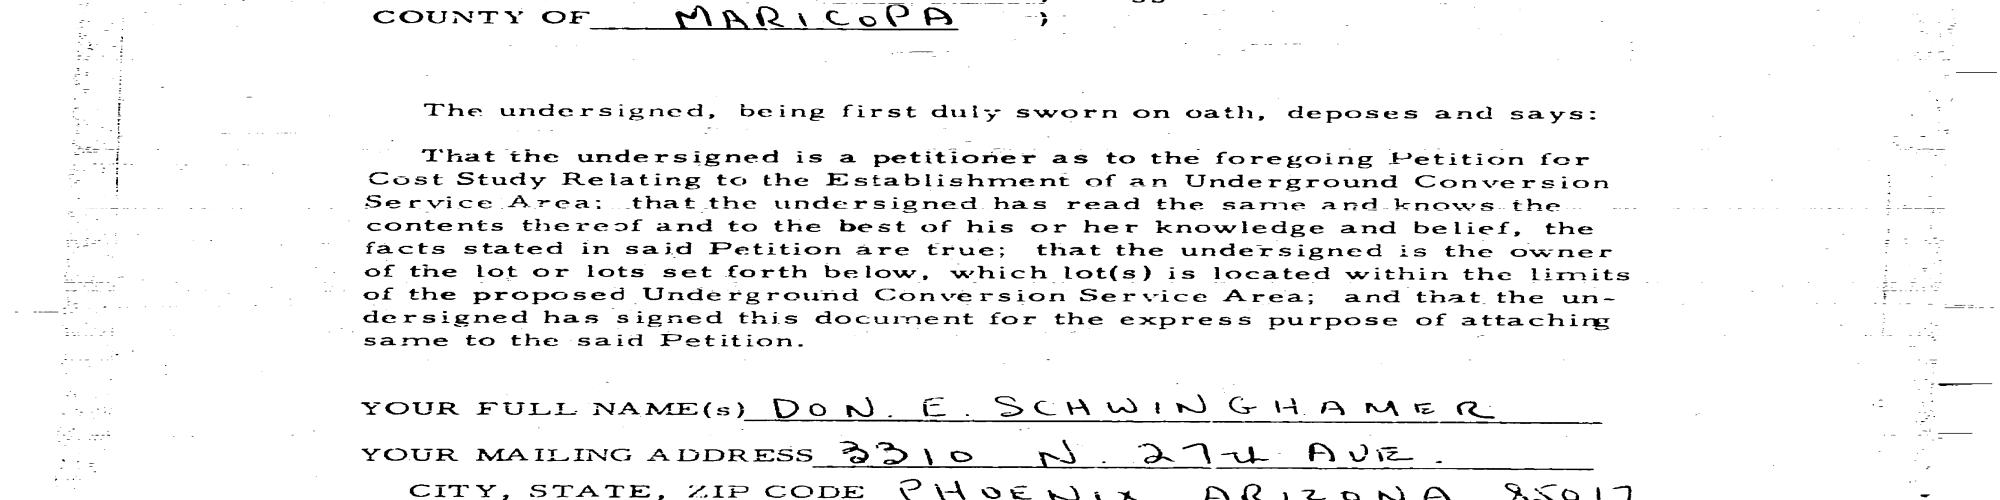 COUNTY OF MARICOPA )
The undersigned, being first duly sworn on oath, deposes and says:
That the undersigned is a petitioner as to the foregoing Petition for
Cost Study Relating to the Establishment of an Underground Conversion
Service Area; that the undersigned has read the same and knows the
contents thereof and to the best of his or her knowledge and belief, the
facts stated in said Petition are true; that the undersigned is the owner
of the lot or lots set forth below, which lot(s) is located within the limits
of the proposed Underground Conversion Service Area; and that the un-
dersigned has signed this document for the express purpose of attaching
same to the said Petition.
YOUR FULL NAME(s) DON. E. SCHWINGHAMER
YOUR MAILING ADDRESS 3310 N. 27th AVE.
CITY, STATE, ZIP CODE PHOENIX ARIZONA 85017